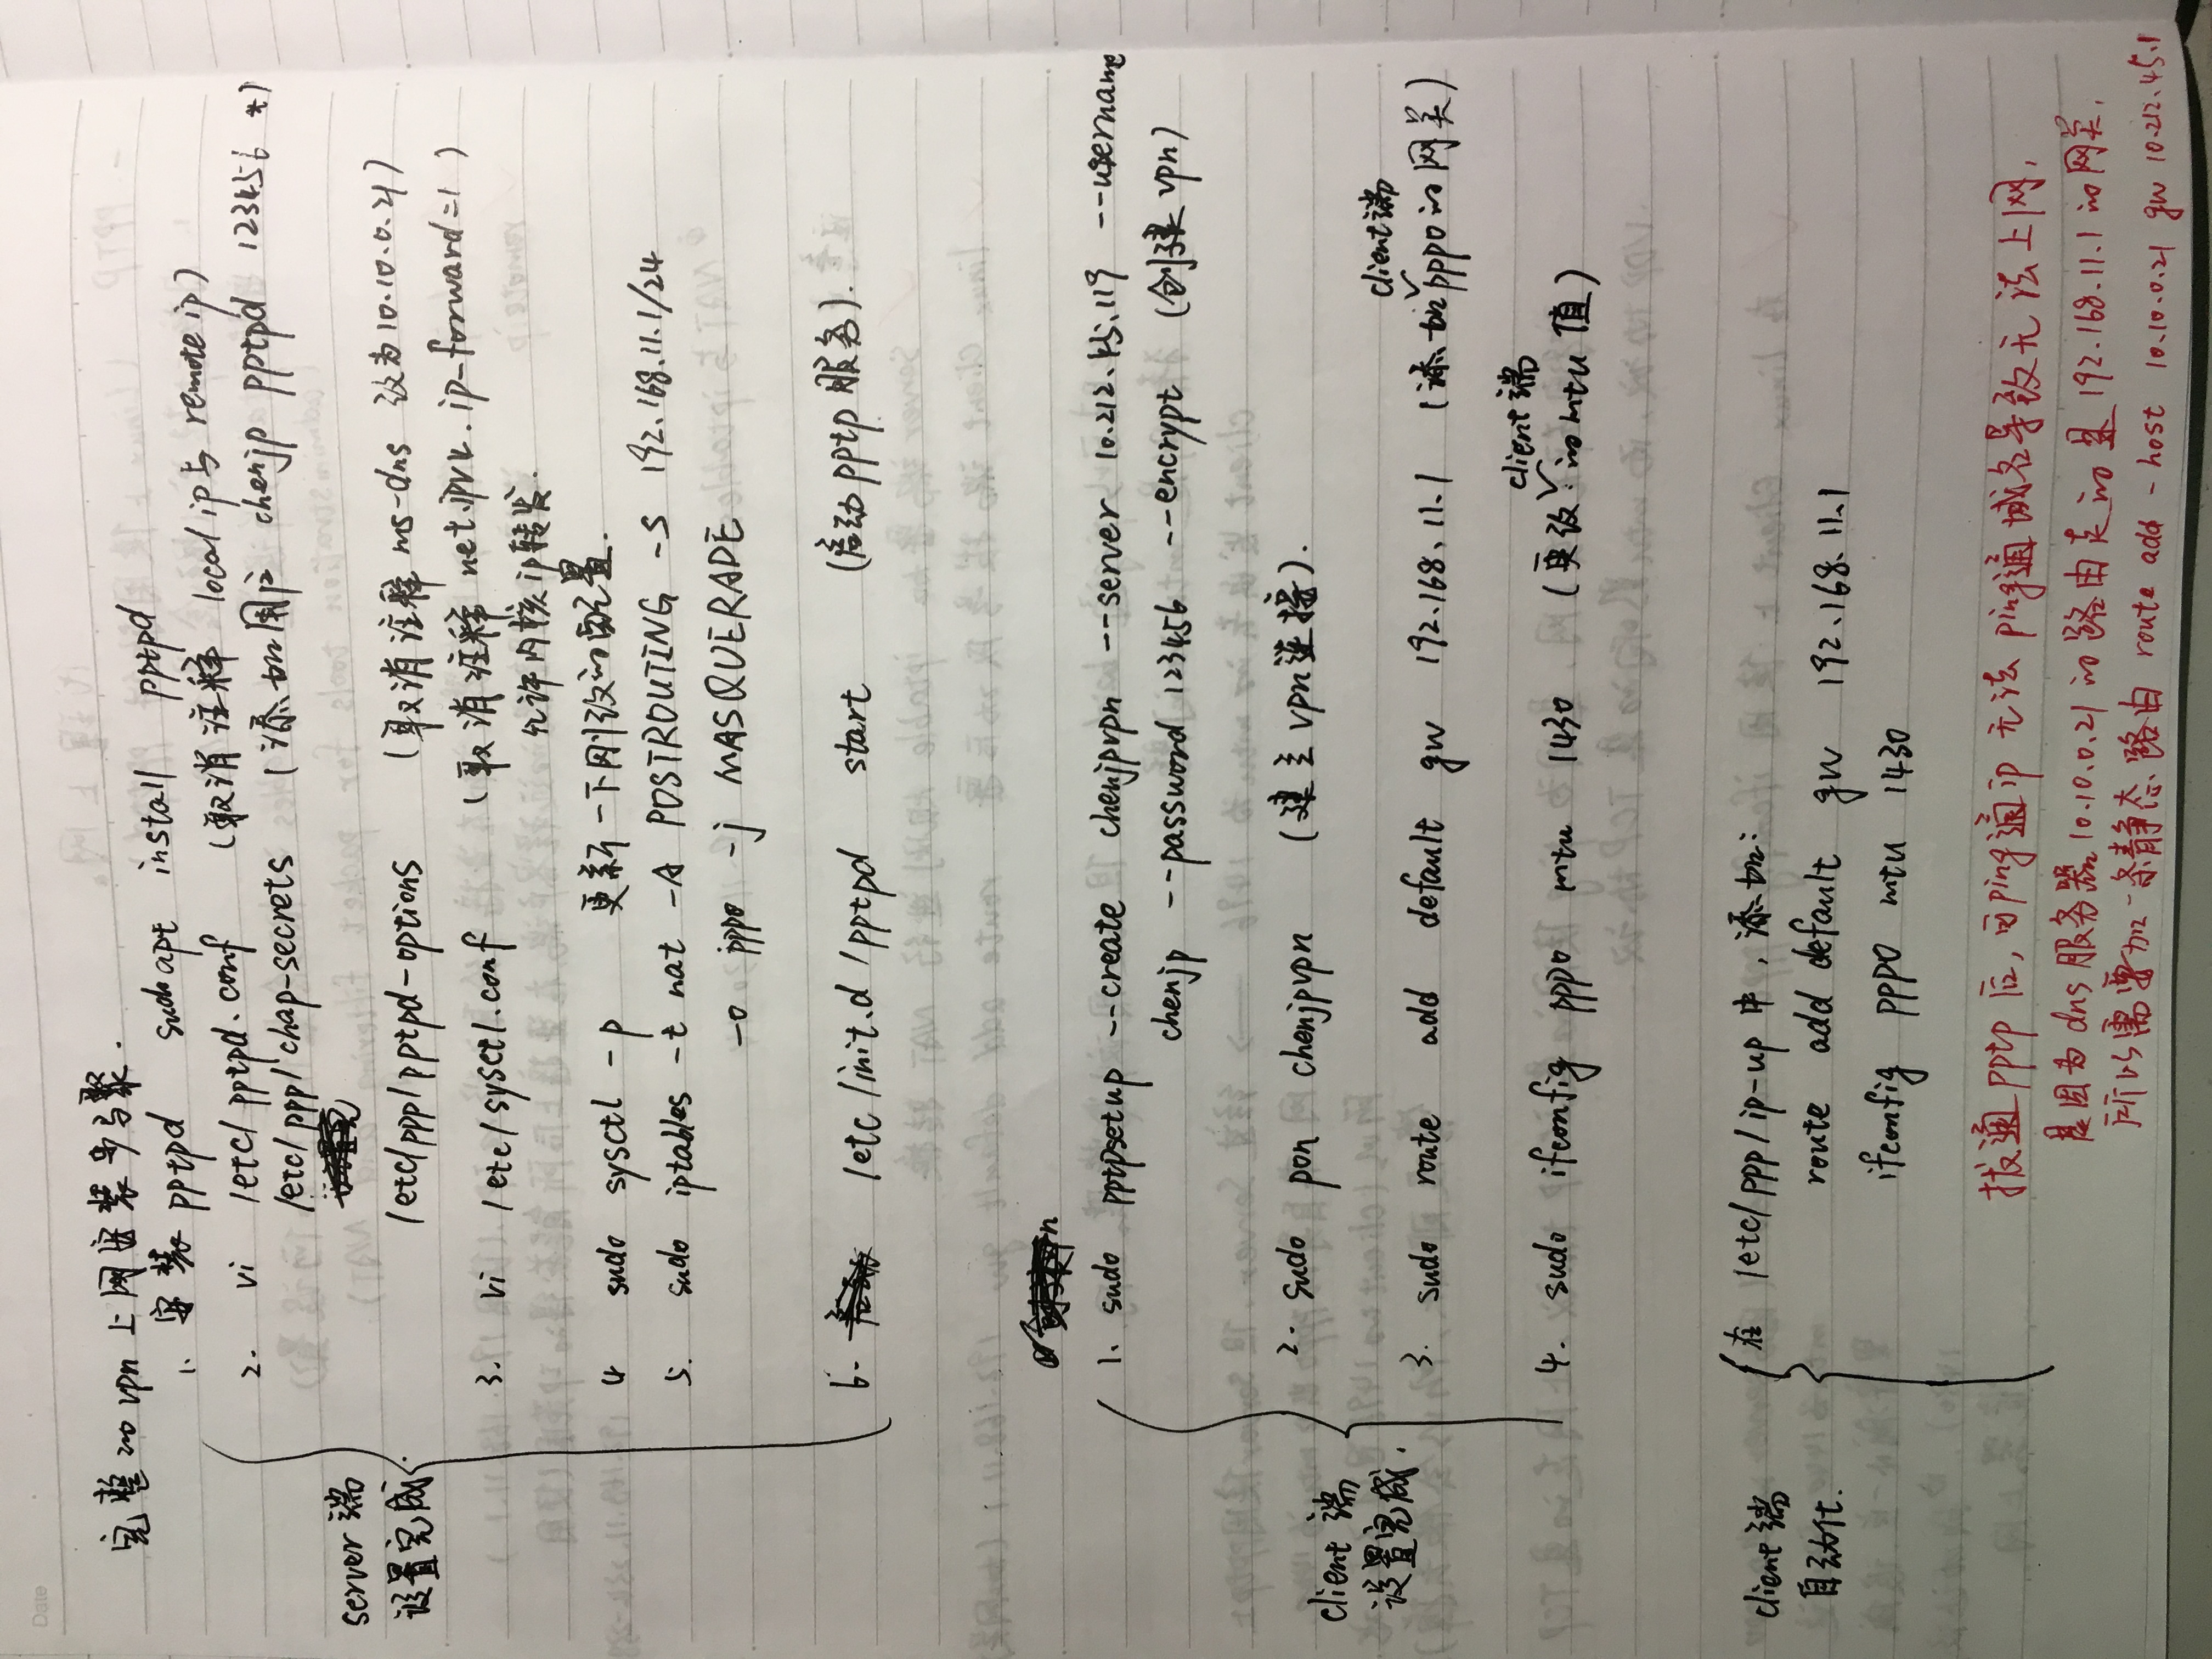 Date
完整的vpn上网安装步骤.
server端
设置完成.
1. 安装 pptpd sudo apt install pptpd
2. vi /etc/pptpd.conf (取消注释 localip与remoteip)
/etc/ppp/chap-secrets (添加用户 chenjp pptpd 123456 *)
/etc/ppp/pptpd-options (取消注释 ms-dns 改为10.10.0.21)
3. vi /etc/sysctl.conf (取消注释 net.ipv4.ip-forward=1)
允许内核ip转发.
4. sudo sysctl -p 更新一下刚改的配置.
5. sudo iptables -t nat -A POSTROUTING -s 192.168.11.1/24
-o ppp0 -j MASQUERADE
6. /etc/init.d/pptpd start (启动pptp服务).
client端
设置完成.
1. sudo pptpsetup --create chenjpvpn --server 10.212.45.119 --username
chenjp --password 123456 --encrypt (创建vpn)
2. sudo pon chenjpvpn (建立vpn连接).
3. sudo route add default gw 192.168.11.1 (添加client端ppp0的网关)
4. sudo ifconfig ppp0 mtu 1430 (更改client端的mtu值)
client端
自动化.
在 /etc/ppp/ip-up 中, 添加:
route add default gw 192.168.11.1
ifconfig ppp0 mtu 1430
拨通pptp后, 可ping通ip 无法ping通域名导致无法上网,
是因为dns服务器10.10.0.21的路由走的是192.168.11.1的网关,
所以需要加一条静态路由 route add -host 10.10.0.21 gw 10.212.45.1